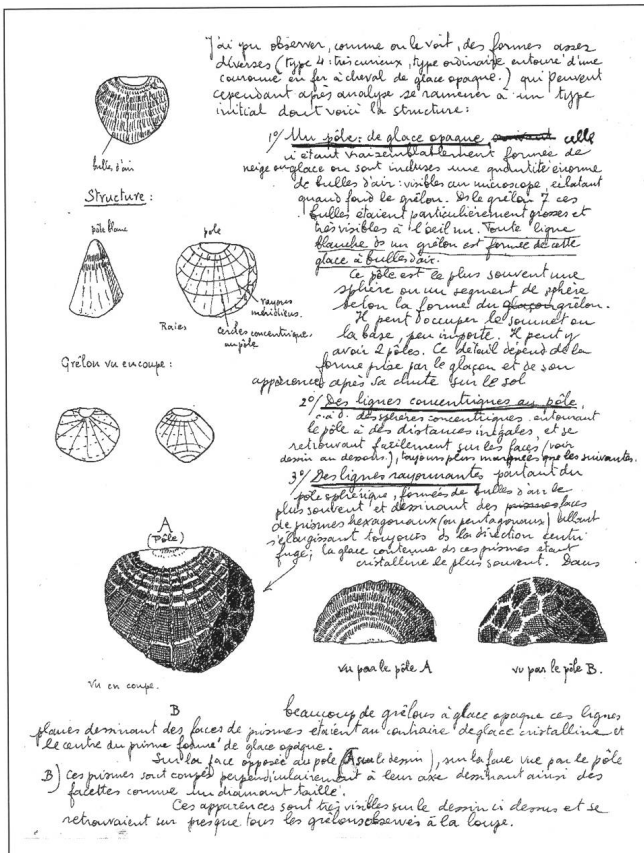 J'ai pu observer, comme on le voit, des formes assez
diverses (type 4 : très curieux, type ordinaire entouré d'une
couronne en fer à cheval de glace opaque.) qui peuvent
cependant après analyse se ramener à un type
initial dont voici la structure :
bulles d'air
Structure :
1°/ Un pôle : de glace opaque, celle
ci étant vraisemblablement formée de
neige ou glace ou sont incluses une quantité énorme
de bulles d'air : visibles au microscope, éclatant
quand fond le grêlon. Ds le grêlon 7 ces
bulles étaient particulièrement grosses et
très visibles à l'oeil nu. Toute ligne
blanche ds un grêlon est formée de cette
glace à bulles d'air.
pôle blanc
pole
rayons
méridiens.
Raies
cercles concentriques
au pôle
Ce pôle est le plus souvent une
sphère ou un segment de sphère
selon la forme du glaçon grêlon.
Il peut occuper le sommet ou
la base, peu importe. Il peut y
avoir 2 pôles. Ce détail dépend de la
forme prise par le glaçon et de son
apparence après sa chute sur le sol
Grêlon vu en coupe :
2°/ Des lignes concentriques au pôle,
c.à.d. des sphères concentriques entourant
le pôle à des distances inégales, et se
retrouvant facilement sur les faces (voir
dessin au dessous), toujours plus marquées que les suivantes.
3°/ Des lignes rayonnantes partant du
pôle sphérique, formées de bulles d'air le
plus souvent et dessinant des faces
de prismes hexagonaux (ou pentagonaux)
s'élargissant toujours ds la direction centri
fuge ; la glace contenue ds ces prismes étant
cristalline le plus souvent. Dans
A
(Pôle)
vu en coupe.
B
vu par le pôle A
vu par le pôle B.
beaucoup de grêlons à glace opaque ces lignes
planes dessinant des faces de prismes étaient au contraire de glace cristalline et
le centre du prisme formé de glace opaque.
Sur la face opposée au pôle (A sur le dessin), sur la face vue par le pôle
B) ces prismes sont coupés perpendiculairement à leur axe dessinant ainsi des
facettes comme un diamant taillé.
Ces apparences sont très visibles sur le dessin ci dessus et se
retrouvaient sur presque tous les grêlons observés à la loupe.